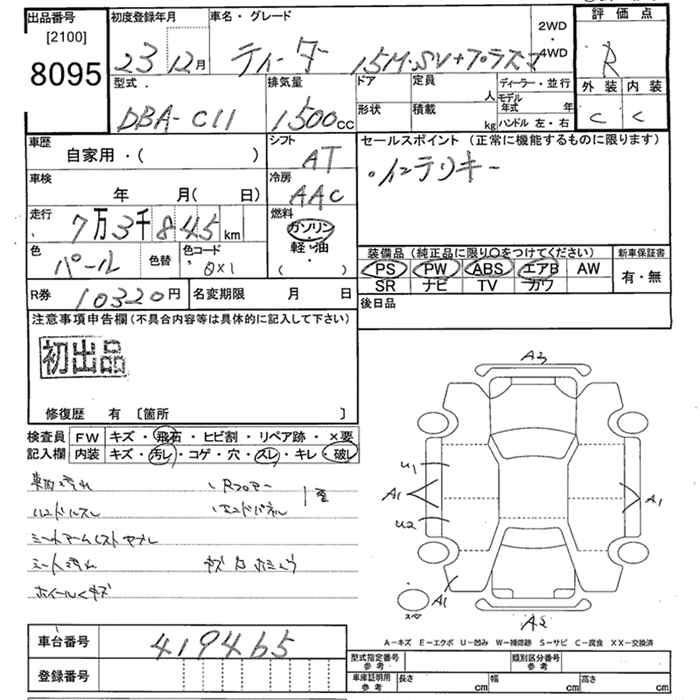 出品番号
[2100]
8095
初度登録年月
23 12月
車名・グレード
ティーダ 15M・SV+プラズマ
2WD
・
4WD
評価点
R
外装 内装
C C
型式
DBA-C11
排気量
1500cc
ドア
形状
定員 人
積載 kg
ディーラー・並行
モデル年式 年
ハンドル 左・右
車歴
自家用・( )
車検
年 月(日)
走行
7万3千845km
色
パール
色替
色コード
QX1
シフト
AT
冷房
AAC
燃料
ガソリン
・
軽油
( )
セールスポイント (正常に機能するものに限ります)
・インテリキー
装備品 (純正品に限り〇をつけてください)
PS PW ABS エアB AW
SR ナビ TV カワ
新車保証書
有・無
R券
10320円
名変期限 月 日
後日品
注意事項申告欄 (不具合内容等は具体的に記入して下さい)
初出品
修復歴 有 [箇所 ]
検査員記入欄
FW キズ・飛石・ヒビ割・リペア跡・×要
内装 キズ・汚レ・コゲ・穴・スレ・キレ・破レ
ハンドルスレ
シート汚れ
ホイールキズ
Rフロアー
エンドパネル
A3
U1
A1
U2
A1
A1
A2
スペア
A-キズ E-エクボ U-凹み W-補修跡 S-サビ C-腐食 XX-交換済
車台番号
419465
登録番号
型式指定番号 参考
類別区分番号 参考
車庫証明用 参考
長さ cm
幅 cm
高さ cm